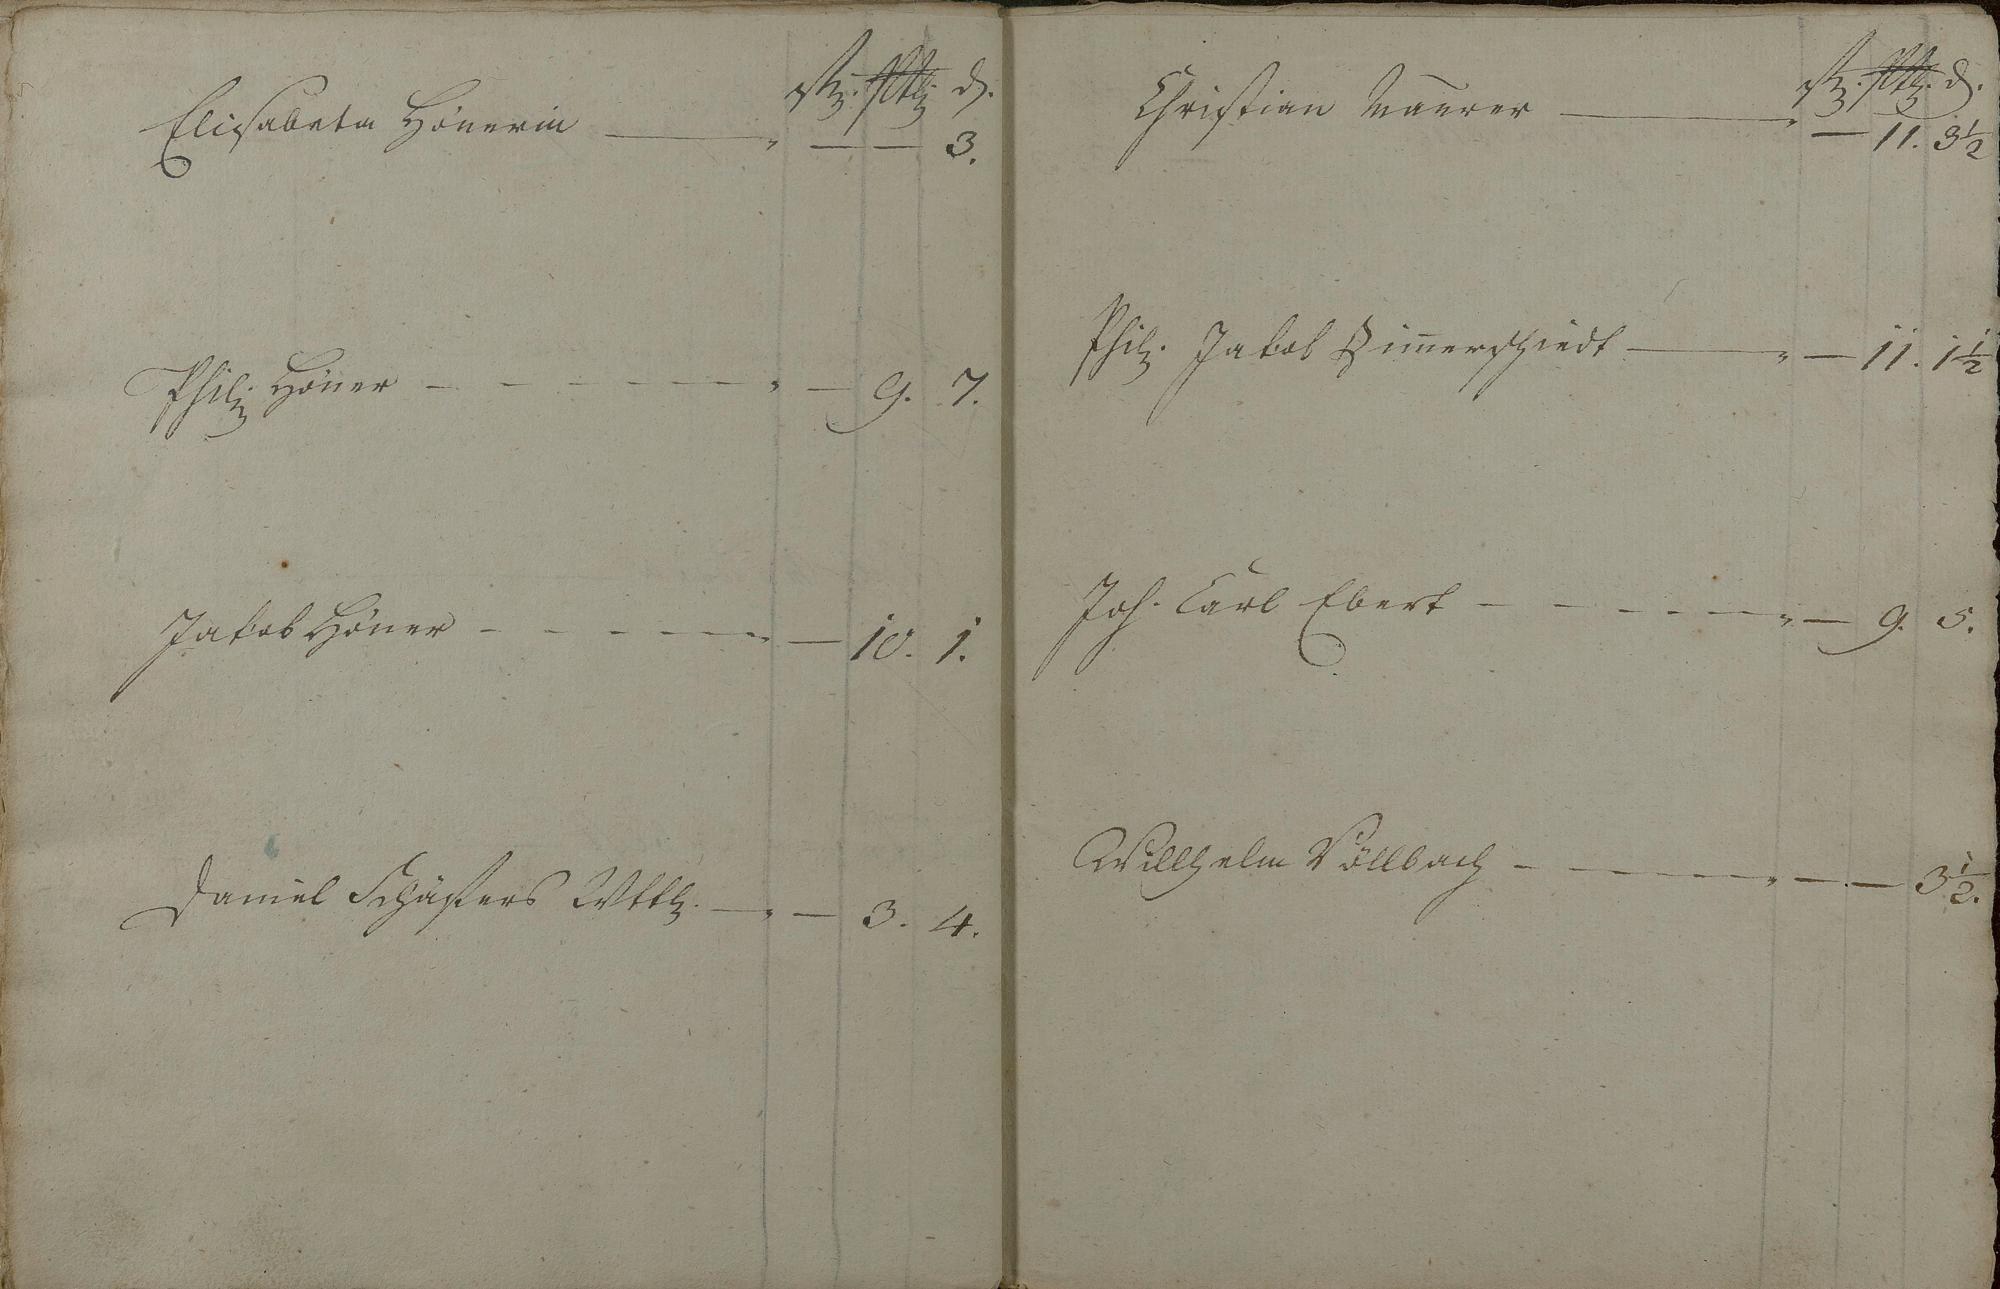 d.
Elisabeta Hönerin — " — — 3.
Phil. Höner - - - - - " — 9. 7.
Jakob Höner - - - - - " — 10. 1.
Daniel Schäfers Wttb. — " — 3. 4.
d.
Christian Maurer — " — 11. 3½
Phil. Jakob Zimmerschiedt — " — 11. 1½
Joh. Carl Ebert - - - - - " — 9. 5.
Willhelm Völlbach - - - - - " — — 3½.